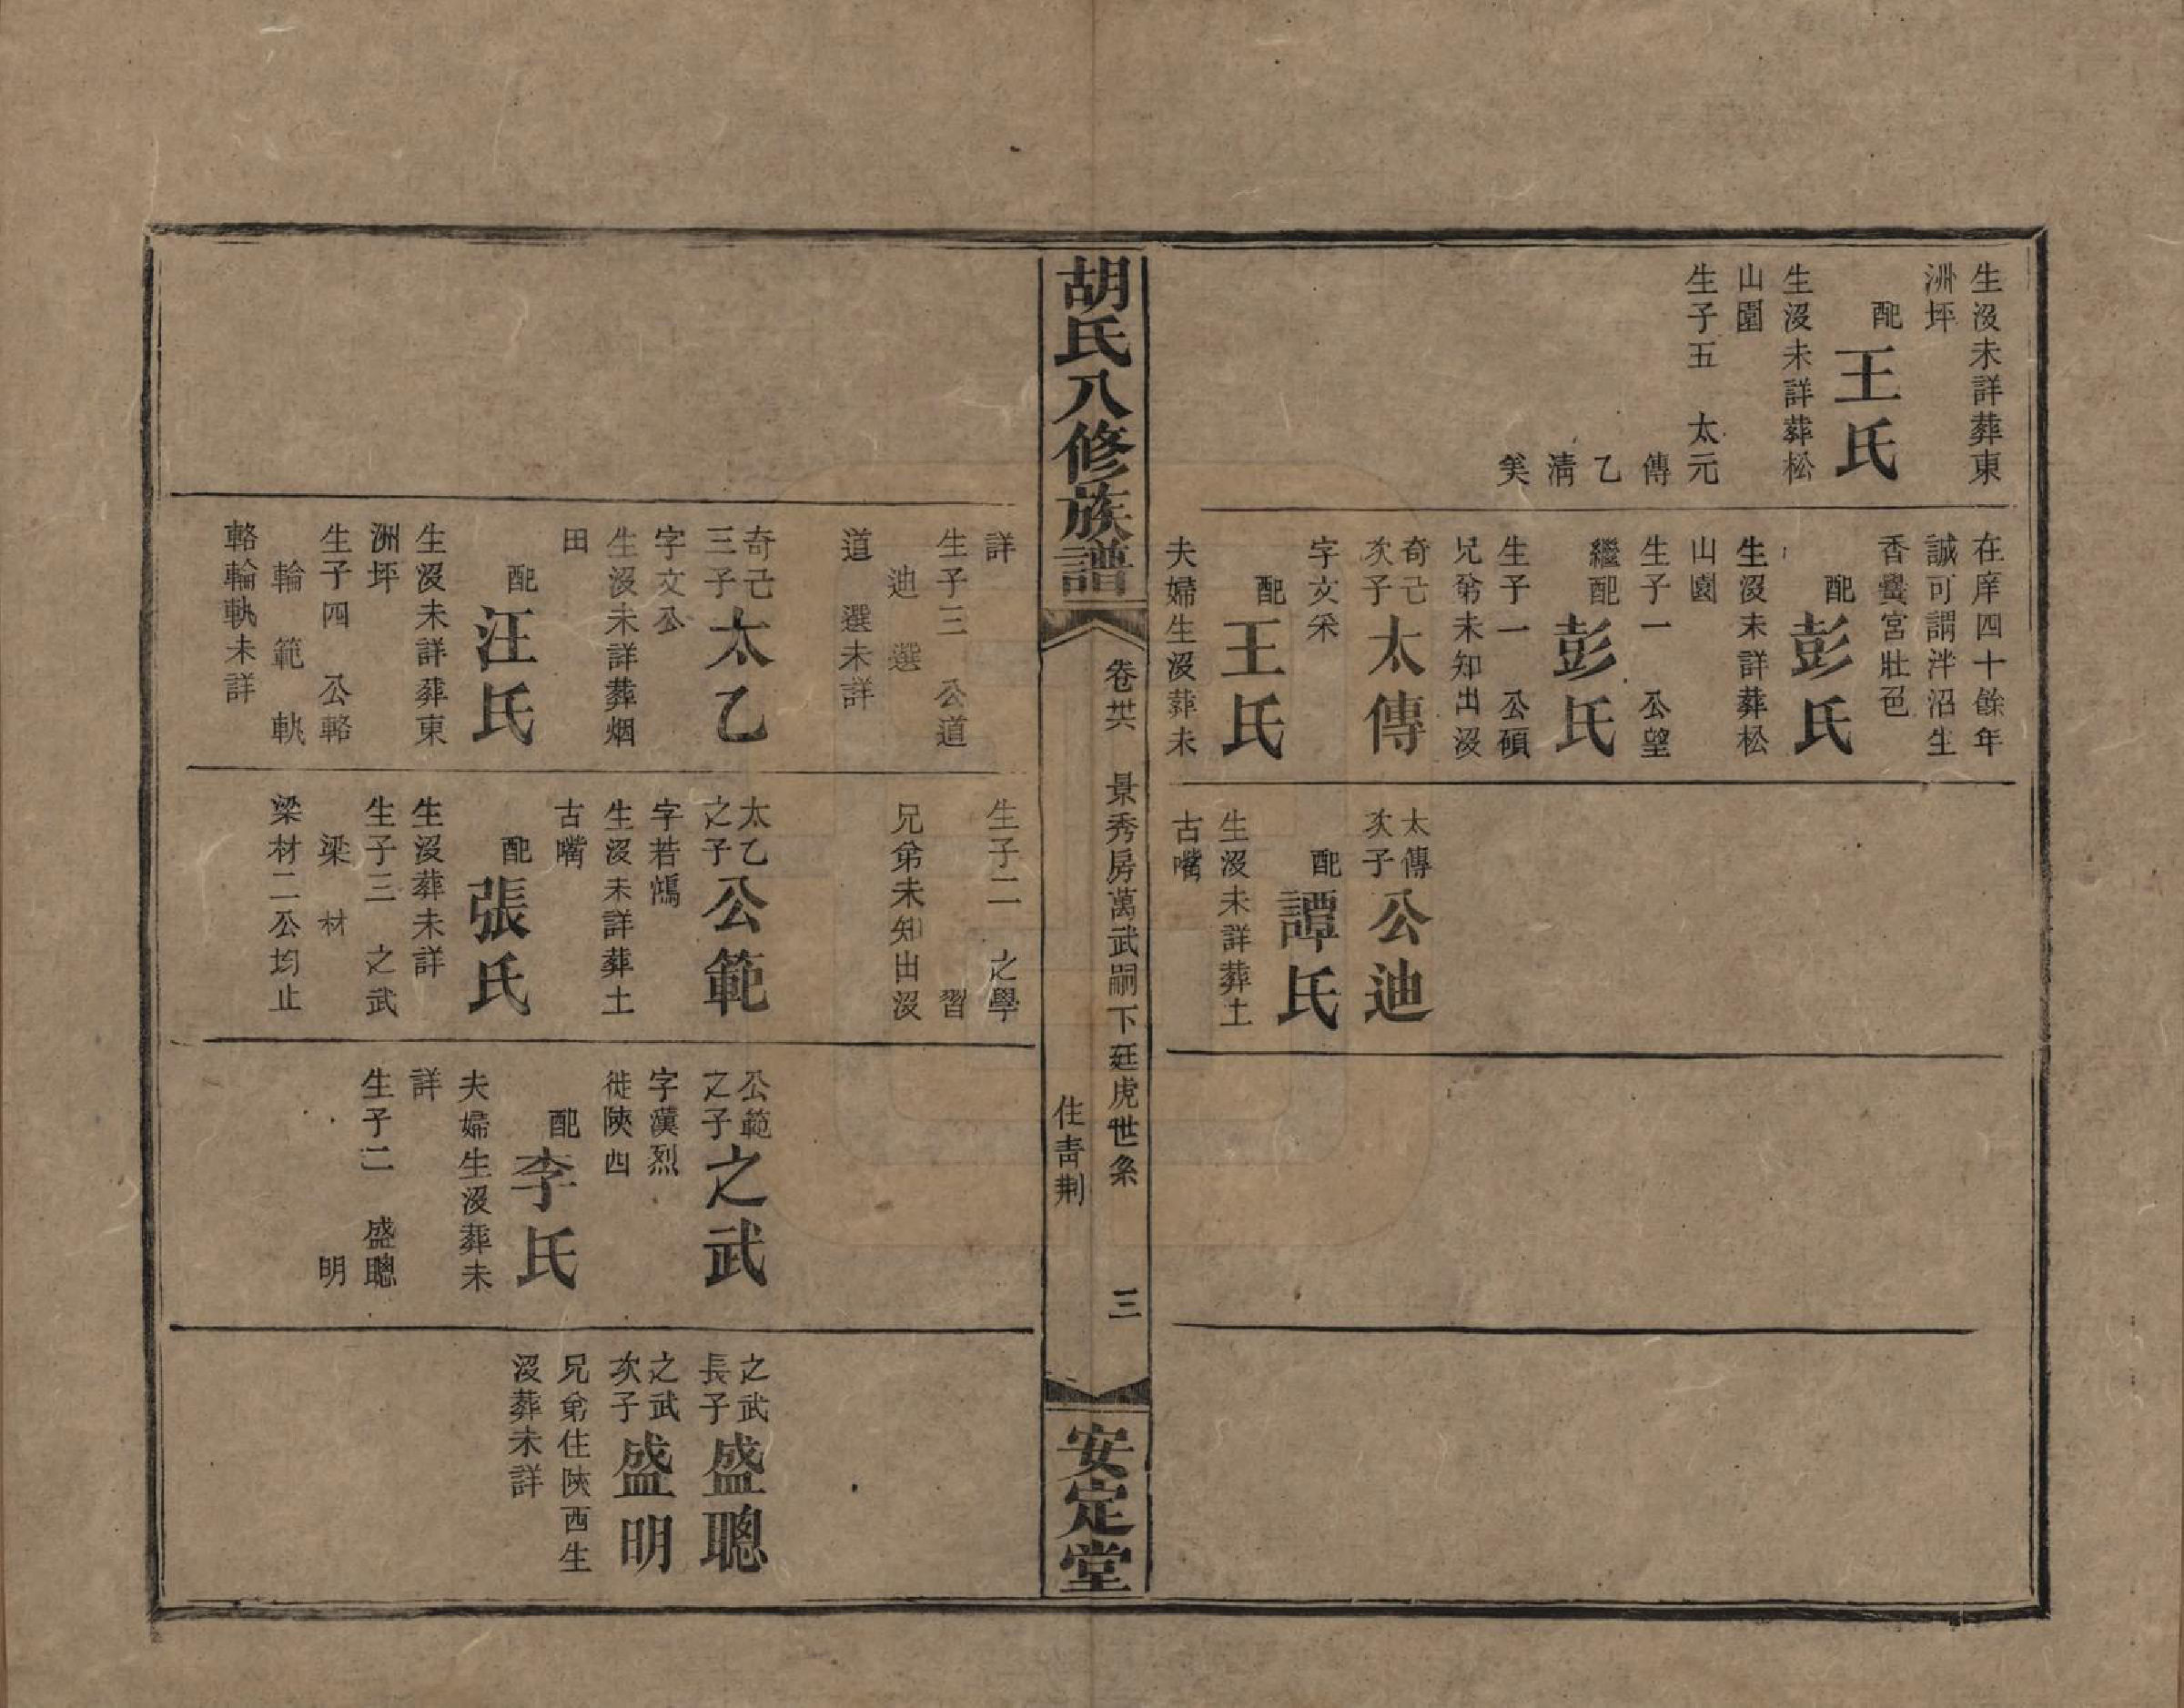 生沒未詳葬東
洲坪
配王氏
生沒未詳葬松
山園
生子五 太元
傳
乙
清
美
在庠四十餘年
誠可謂泮沼生
香黌宮壯色
配彭氏
生沒未詳葬松
山園
生子一 公望
繼配彭氏
生子一 公碩
兄弟未知出沒
奇己次子太傳
字文采
配王氏
夫婦生沒葬未
太傳次子公迪
配譚氏
生沒未詳葬土
古嘴
胡氏八修族譜
卷廿六 景秀房萬武嗣下廷虎世系 三
住青荆
安定堂
詳
生子三 公道
迪 選
道 選未詳
奇己三子太乙
字文公
生沒未詳葬烟
田
配汪氏
生沒未詳葬東
洲坪
生子四 公輅
輪 範 軌
輅輪軌未詳
生子二 之學
習
兄弟未知出沒
太乙之子公範
字若鴻
生沒未詳葬土
古嘴
配張氏
生沒葬未詳
生子三 之武
梁 材
梁材二公均止
公範之子之武
字漢烈
徙陝西
配李氏
夫婦生沒葬未
詳
生子二 盛聰
明
之武長子盛聰
之武次子盛明
兄弟住陝西生
沒葬未詳